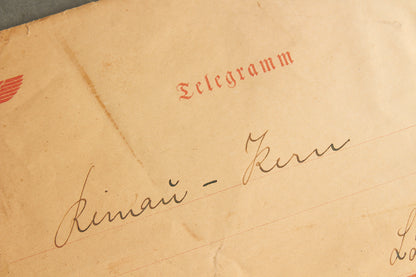 Telegramm
Rimaŭ - Kern